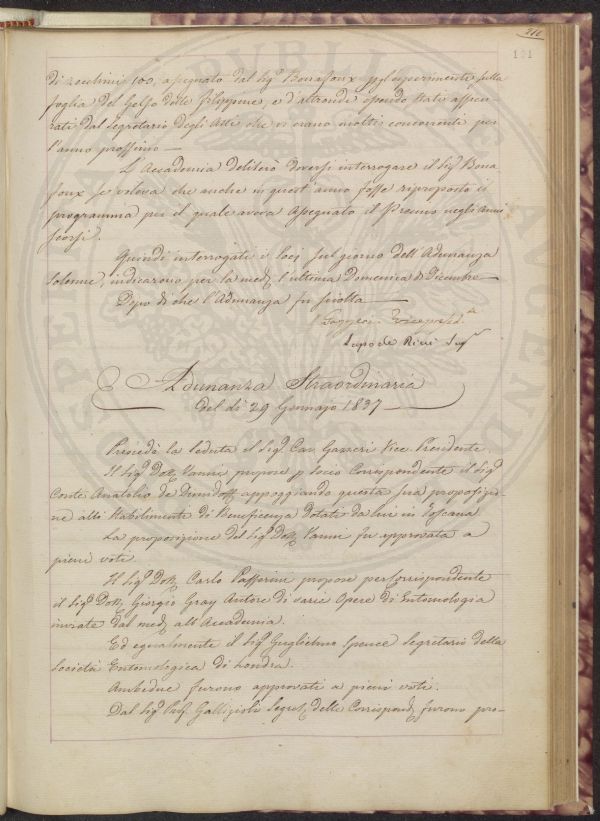 211
121
di zecchini 100, assegnato dal Sigr Bonafoux per gl'esperimenti sulla
foglia del Gelso delle Filippine, e d'altronde essendo stati assicu-
rati dal Segretario degli Atti che vi erano molti concorrenti per
l'anno prossimo —
L'Accademia deliberò doversi interrogare il Sigr Bona
foux se voleva che anche in quest'anno fosse riproposto il
programma per il quale aveva assegnato il Premio negli anni
scorsi.
Quindi interrogati i Soci sul giorno dell'Adunanza
solenne, indicarono per la medma l'ultima Domenica di Dicembre —
Dopo di che l'Adunanza fu sciolta —
Gazzeri Vicepresidte
Segrio
Adunanza Straordinaria
del dì 29 Gennajo 1837
Presedè la seduta il Sigr Cav. Gazzeri Vice Presidente
Il Sigr Dottr Vanni propose p socio Corrispondente il Sigr
Conte Anatolio de Demidoff appoggiando questa sua proposizio-
ne alli stabilimenti di Beneficenza dotati da lui in Toscana
La proposizione del Sigr Dottr Vanni fu approvata a
pieni voti.
Il Sigr Dottr Carlo Passerini propose per Corrispondente
il Sigr Dottr Giorgio Gray Autore di varie Opere di Entomologia
inviate dal medo all'Accademia.
Ed egualmente il Sigr Guglielmo Spence Segretario della
Società Entomologica di Londra.
Ambedue furono approvati a pieni voti.
Dal Sigr Prof. Gallizioli Segreto delle Corrispondze furono pro-